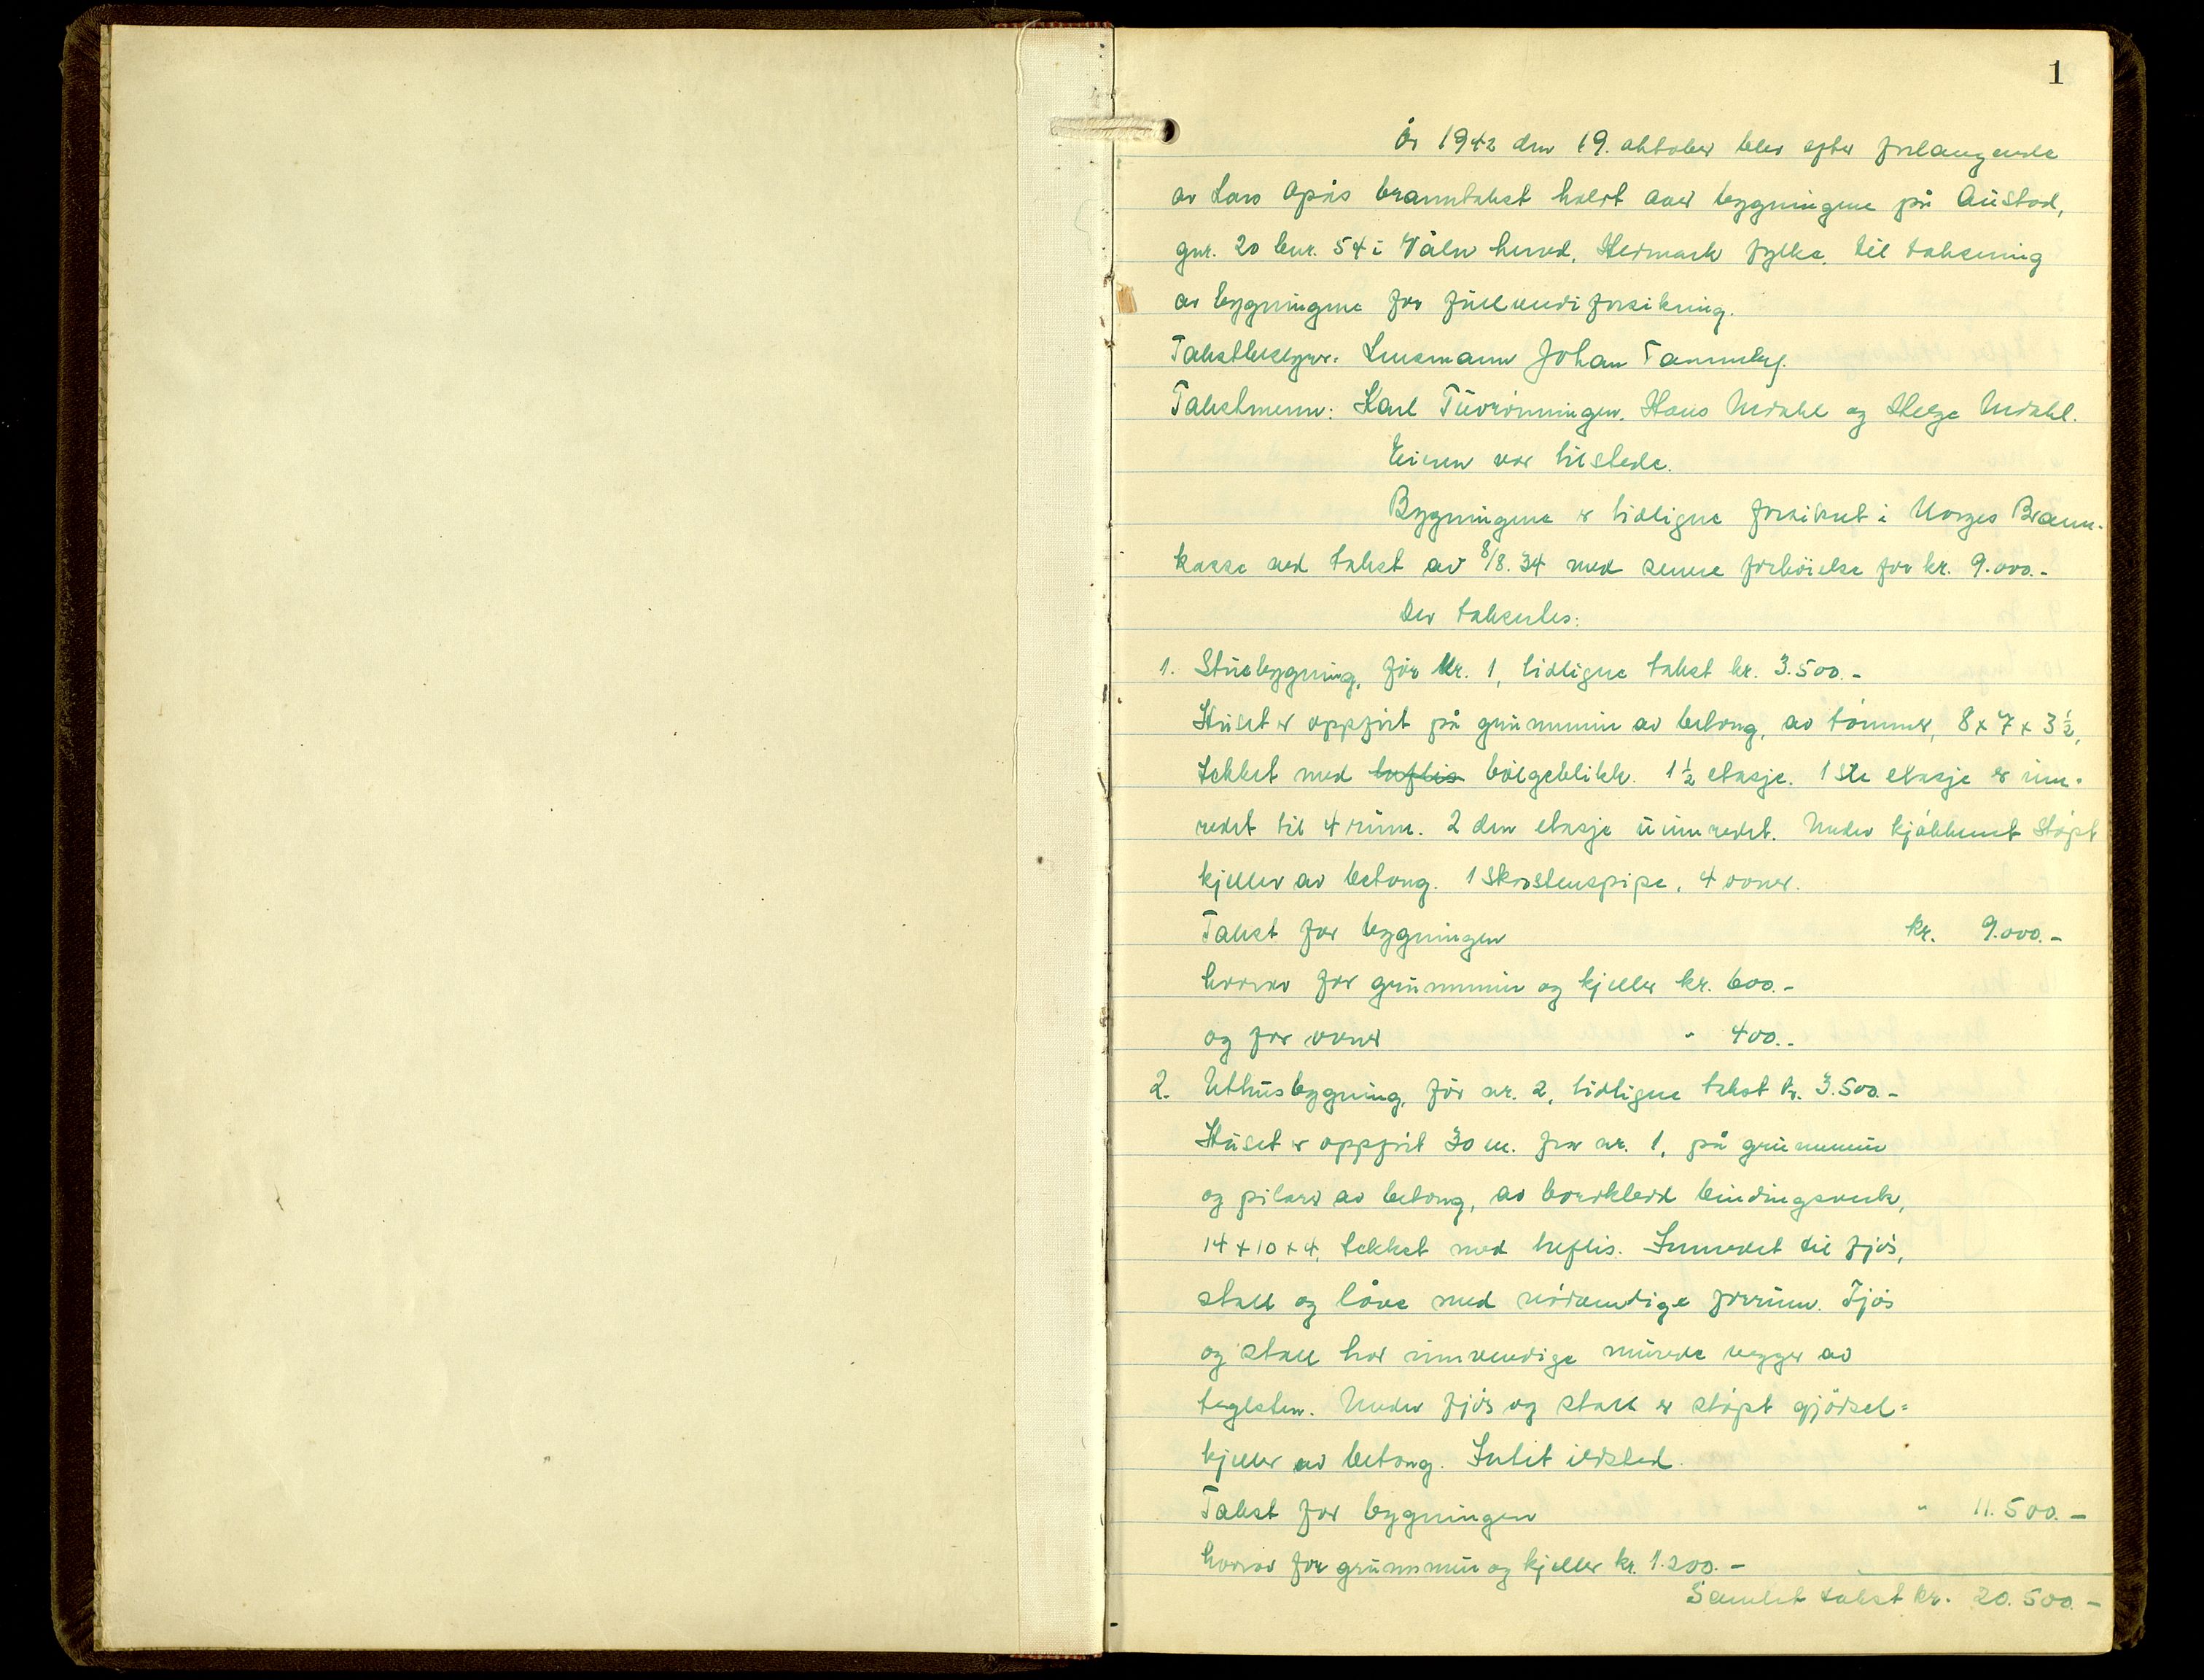 1
År 1942 den 19. oktober blev efter forlangende
av Lars Opås branntakst holdt over bygningene på Austad,
gnr. 20 bnr. 54 i Våler herred, Hedmark fylke, til taksering
av bygningene for fullverdiforsikring.
Takstbestyrer: Lensmann Johan Tannæs.
Takstmenn: Karl Tuvrønningen, Hans Urdahl og Helge Urdahl.
Eieren var tilstede.
Bygningene er tidligere forsikret i Norges Brann-
kasse ved takst av 8/8.34 med senere forhöielse for kr. 9.000.-
Der takseres:
1. Stuebygning, för Nr. 1, tidligere takst kr. 3.500.-
Huset er oppfört på grunnmur av betong, av tömmer, 8 x 7 x 3 1/2,
tekket med huflis bölgeblikk. 1 1/2 etasje. 1ste etasje er inn-
redet til 4 rum. 2den etasje uinnredet. Under kjökkenet stöpt
kjeller av betong. 1 skorstenspipe, 4 ovner.
Takst for bygningen kr. 9.000.-
hvorav for grunnmur og kjeller kr. 600.-
og for ovner " 400.-
2. Uthusbygning, för nr. 2, tidligere takst kr. 3.500.-
Huset er oppfört 30 m. fra nr. 1, på grunnmur
og pilarer av betong, av bordkledd bindingsverk,
14 x 10 x 4, tekket med huflis. Innredet til fjös,
stall og låve med nödvendige forrum. Fjös
og stall har innvendige murede vegger av
teglsten. Under fjös og stall er stöpt gjödsel-
kjeller av betong. Intet ildsted.
Takst for bygningen " 11.500.-
hvorav for grunnmur og kjeller kr. 1.200.-
Samlet takst kr. 20.500.-